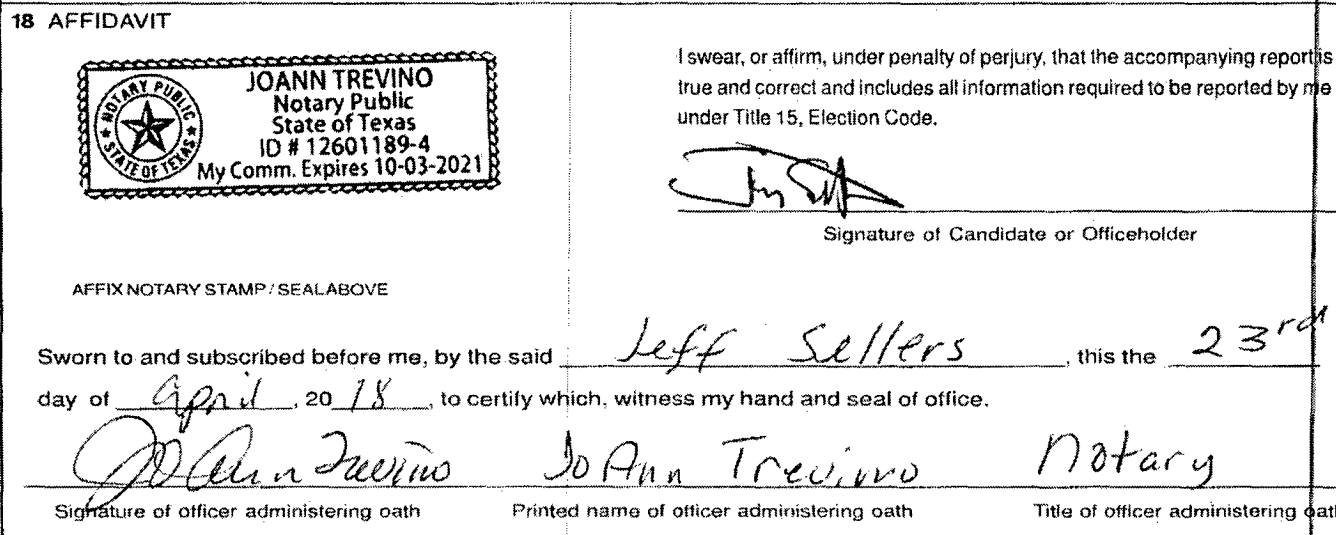 18 AFFIDAVIT
NOTARY PUBLIC
STATE OF TEXAS
JOANN TREVINO
Notary Public
State of Texas
ID # 12601189-4
My Comm. Expires 10-03-2021
I swear, or affirm, under penalty of perjury, that the accompanying report is
true and correct and includes all information required to be reported by me
under Title 15, Election Code.
Signature of Candidate or Officeholder
AFFIX NOTARY STAMP / SEAL ABOVE
Sworn to and subscribed before me, by the said Jeff Sellers, this the 23rd
day of April, 20 18, to certify which, witness my hand and seal of office.
JoAnn Trevino JoAnn Trevino Notary
Signature of officer administering oath Printed name of officer administering oath Title of officer administering oath